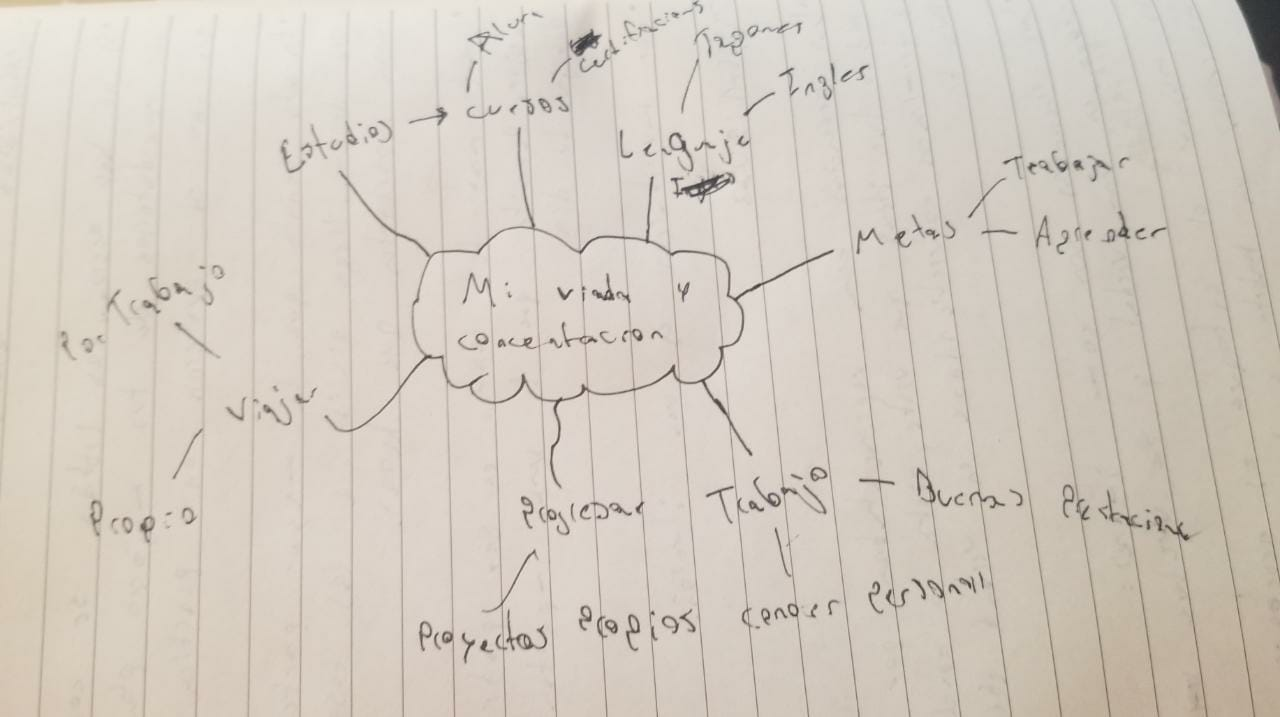 Alura
certificaciones
Estudios → cursos
Japones
Ingles
Lenguaje
Metas
Trabajar
Aprender
Mi viada y
concentracion
Por Trabajo
Viajar
Propio
Progresar
Proyectos Propios
Trabajo — Buenas Prestaciones
Conocer Personal